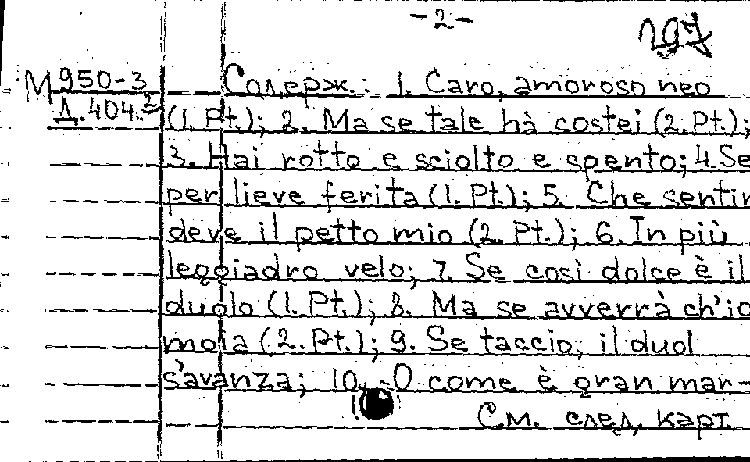 -2-
197
М 950-3 Содерж.: 1. Caro, amoroso neo
Л. 404.2 (1. Pt.); 2. Ma se tale hà costei (2. Pt.);
3. Hai rotto e sciolto e spento; 4. Se
per lieve ferita (1. Pt.); 5. Che sentir
deve il petto mio (2. Pt.); 6. In più
leggiadro velo; 7. Se così dolce è il
duolo (1. Pt.); 8. Ma se avverrà ch'io
moia (2. Pt.); 9. Se taccio, il duol
s'avanza; 10. O come è gran mar-
См. след. карт.